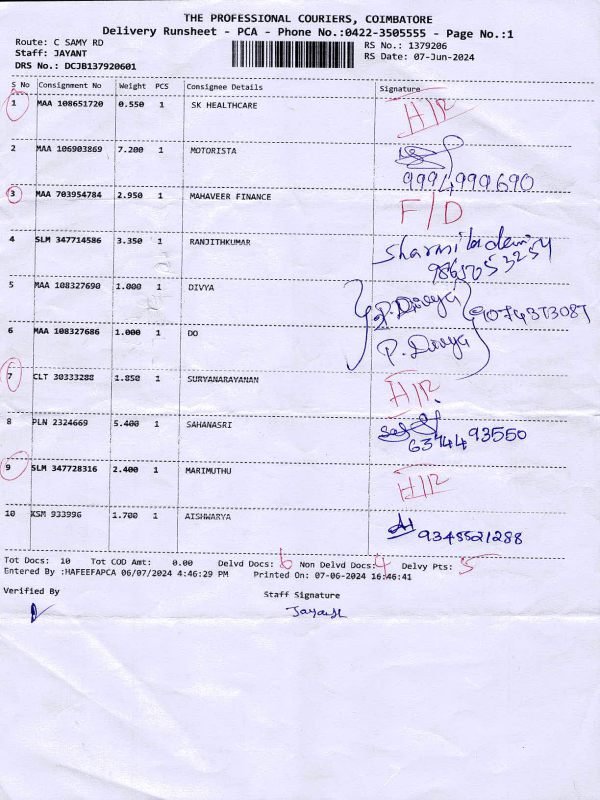 THE PROFESSIONAL COURIERS, COIMBATORE
Delivery Runsheet - PCA - Phone No.:0422-3505555 - Page No.:1
Route: C SAMY RD
Staff: JAYANT
DRS No.: DCJB137920601
RS No.: 1379206
RS Date: 07-Jun-2024
S No Consignment No Weight PCS Consignee Details Signature
1 MAA 108651720 0.550 1 SK HEALTHCARE H/R
2 MAA 106903869 7.200 1 MOTORISTA
9994990690
3 MAA 703954784 2.950 1 MAHAVEER FINANCE F/D
4 SLM 347714586 3.350 1 RANJITHKUMAR
5 MAA 108327690 1.000 1 DIVYA P. Divya
6 MAA 108327686 1.000 1 DO P. Divya
7 CLT 30333288 1.850 1 SURYANARAYANAN H/R
8 PLN 2324669 5.400 1 SAHANASRI
9 SLM 347728316 2.400 1 MARIMUTHU H/R
10 KSM 933996 1.700 1 AISHWARYA 9345521288
Tot Docs: 10 Tot COD Amt: 0.00 Delvd Docs: 6 Non Delvd Docs: 4 Delvy Pts: 5
Entered By :HAFEEFAPCA 06/07/2024 4:46:29 PM Printed On: 07-06-2024 16:46:41
Verified By Staff Signature